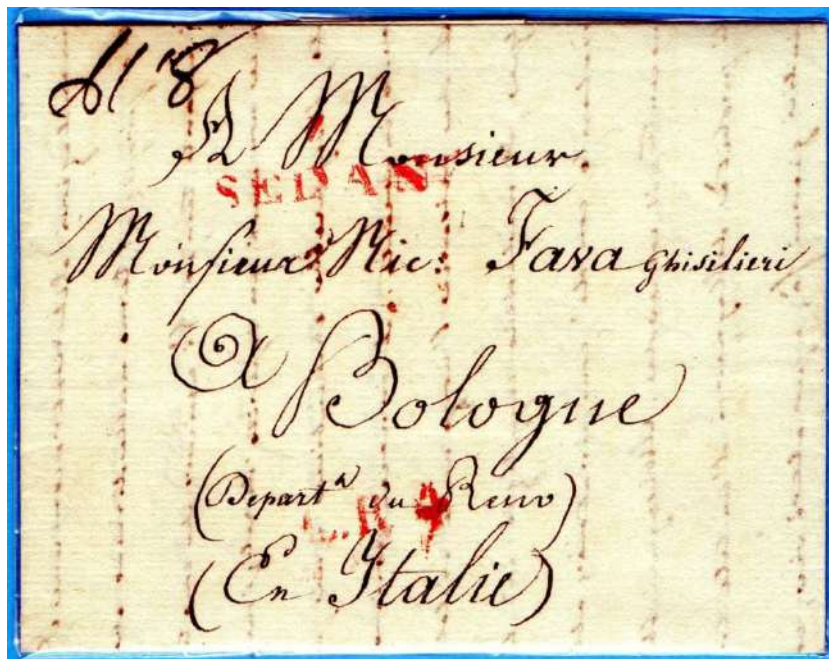 A Monsieur
SEDAN
Monsieur Nic: Fava Ghisilieri
A Bologne
(Depart.t du Reno)
(En Italie)